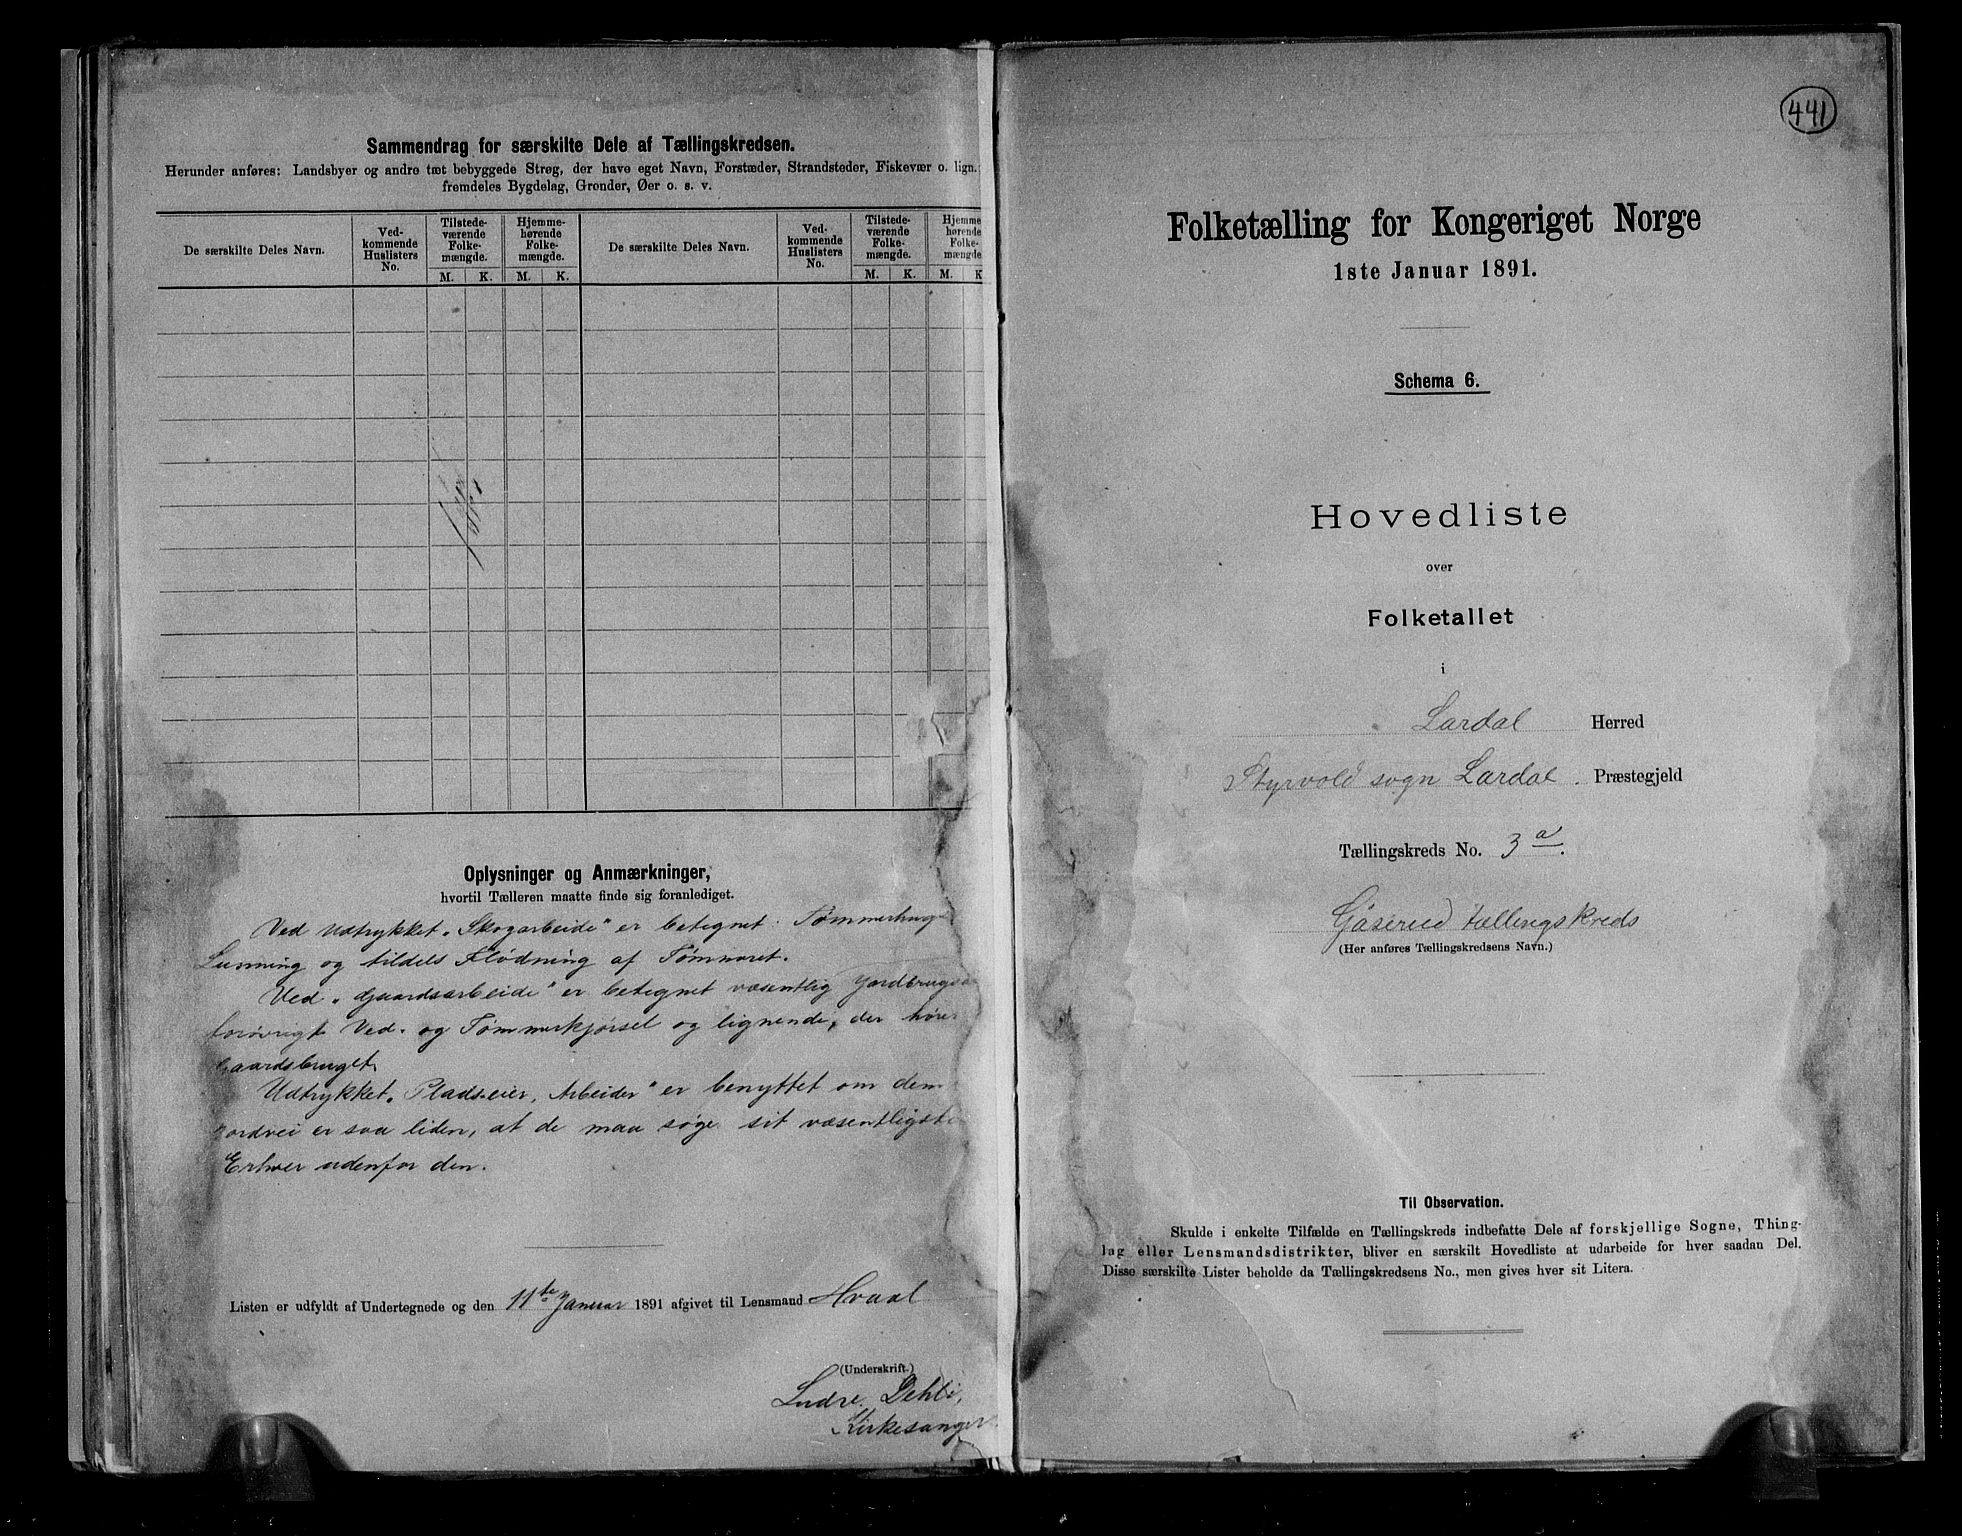 Sammendrag for særskilte Dele af Tællingskredsen.
Herunder anføres: Landsbyer og andre tæt bebyggede Strøg, der have eget Navn, Forstæder, Strandsteder, Fiskevær o. lign.;
fremdeles Bygdelag, Grender, Øer o. s. v.
De særskilte Deles Navn.
Ved-
kommende
Huslisters
No.
Tilstede-
værende
Folke-
mængde.
Hjemme-
hørende
Folke-
mængde.
M. K. M. K.
De særskilte Deles Navn.
Ved-
kommende
Huslisters
No.
Tilstede-
værende
Folke-
mængde.
Hjemme-
hørende
Folke-
mængde
M. K. M. K
Oplysninger og Anmærkninger,
hvortil Tælleren maatte finde sig foranlediget.
Ved udtrykket „Skogarbeide" er betegnet: Tømmerhug
Lunning og tildels Flødning af Tømmeret.
Ved „Gaardsarbeide" er betegnet væsentlig Jordbrugs
forøvrigt Ved- og Tømmerkjørsel og lignende, der hører
Gaardsbruget.
Udtrykket „Pladseier, Arbeider" er benyttet om dem
Jordvei er saa liden, at de maa søge sit væsentligste
Erhver udenfor den.
Listen er udfyldt af Undertegnede og den 11te Januar 1891 afgivet til Lensmand Hvaal
(Underskrift.)
Ludv. Dehli,
Kirkesanger.
441
Folketælling for Kongeriget Norge
1ste Januar 1891.
Schema 6.
Hovedliste
over
Folketallet
i
Lardal Herred
Styrvold sogn Lardal. Præstegjeld
Tællingskreds No. 3a.
Gåserud tællingskreds
(Her anføres Tællingskredsens Navn.)
Til Observation.
Skulde i enkelte Tilfælde en Tællingskreds indbefatte Dele af forskjellige Sogne, Thing-
lag eller Lensmandsdistrikter, bliver en særskilt Hovedliste at udarbeide for hver saadan Del.
Disse særskilte Lister beholde da Tællingskredsens No., men gives hver sit Litera.